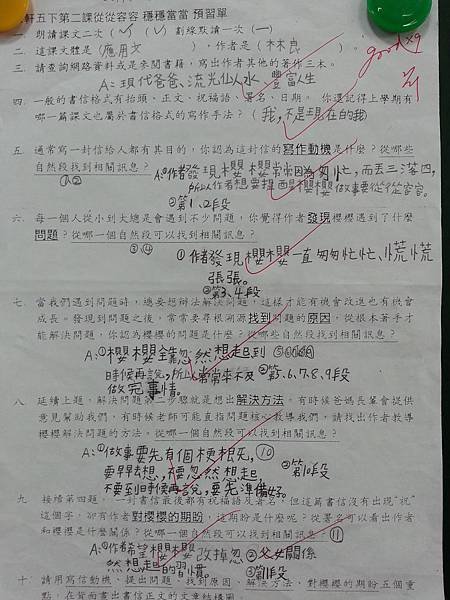 軒五下第二課從從容容 穩穩當當 預習單
一. 朗讀課文二次(✓)(✓) 劃線默讀一次(—)
二. 這課文體是(應用文),作者是(林良)。
三. 請查詢網路資料或是參閱書籍,寫出作者其他的著作三本。
A:現代爸爸、流光似水、豐富人生
good×9
四. 一般的書信格式有抬頭、正文、祝福語、署名、日期。 你還記得上學期有
哪一篇課文也屬於書信格式的寫作手法?(我,不是現在的我)
五 通常寫一封信給人都有其目的,你認為這封信的寫作動機是什麼?從哪些
自然段找到相關訊息?
①②
A:①作者發現櫻櫻常常因為匆忙,而丟三落四,
所以作者想要提醒櫻櫻做事要從從容容。
②第1、2段
六. 每一個人從小到大總是會遇到不少問題,你覺得作者發現櫻櫻遇到了什麼
問題?從哪一個自然段可以找到相關訊息?
③④
①作者發現櫻櫻一直匆匆忙忙、慌慌
張張。
②第3、4段
七. 當我們遇到問題時,總要想辦法解決問題,這樣才能有機會改進也有機會
成長。發現到問題之後,常常要尋根溯源找到問題的原因,從根本著手才
能解決問題,你認為櫻櫻的問題是什麼?從哪些自然段找到相關訊息?
A:①櫻櫻全靠忽然想起到
時候再說,所以常常來不及
做完事情。
②第5、6、7、8、9段
八. 延續上題,解決問題第二步驟就是想出解決方法,有時候爸媽長輩會提供
意見幫助我們,有時候老師可能直指問題核心教導我們,請找出作者教導
櫻櫻解決問題的方法。從哪一個自然段可以找到相關訊息?
A:①做事要先有個梗概,⑩
要早早去想,
不要到時候再說,要先準備好。
②第10段
九. 接續第四題,一封書信最後都有祝福語及署名,但這篇書信沒有出現"祝"
這個字,卻有作者對櫻櫻的期盼,這期盼是什麼呢?從署名可以看出作者
和櫻櫻是什麼關係?從哪一個自然段可以找到相關訊息?⑪
A:①作者希望櫻櫻改掉忽
然想起的習慣。
②父女關係
③第11段
十. 請用寫信動機、提出問題、找到原因、解決方法、對櫻櫻的期盼五個重
點,在背面畫出書信正文的文章結構圖。